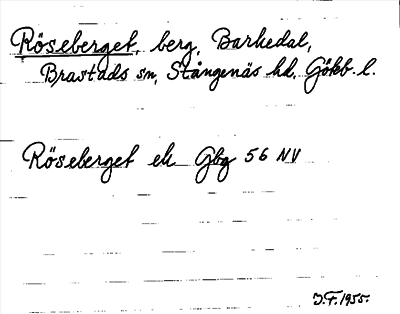 Röseberget, berg, Barkedal,
Brastads sn, Stångenäs hd, Göteb. l.
Röseberget ek Gbg 56 NV
J.F. 1955.